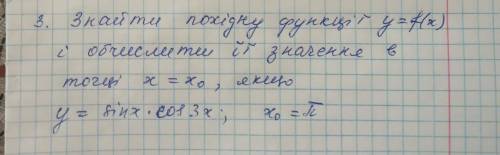 3. Знайти похідну функції y=f(x)
і обчислити її значення в
точці x = x₀, якщо
y = sinx·cos3x; x₀ = π